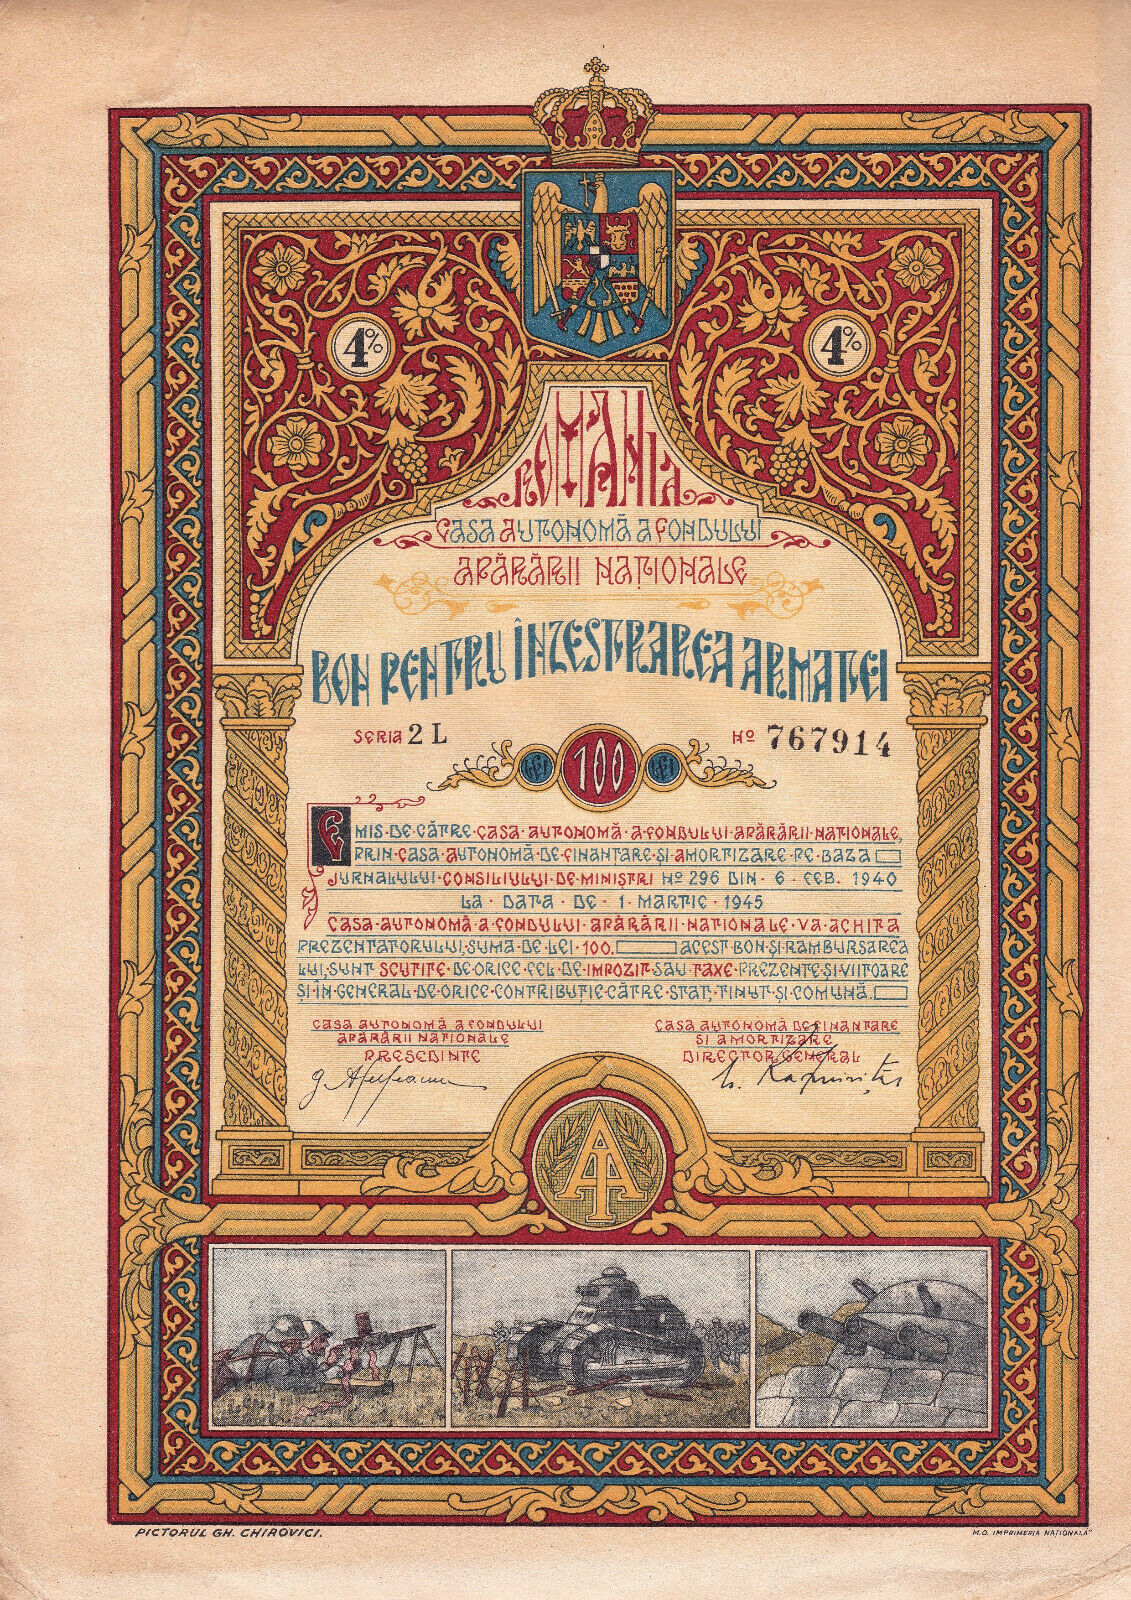 4%
4%
ROMÂNIA
CASA AUTONOMĂ A FONDULUI
APĂRĂRII NAȚIONALE
BON PENTRU ÎNZESTRAREA ARMATEI
SERIA 2 L
No 767914
LEI 100 LEI
EMIS·DE·CĂTRE·CASA·AUTONOMĂ·A·FONDULUI·APĂRĂRII·NAȚIONALE,
PRIN·CASA·AUTONOMĂ·DE·FINANTARE·ȘI·AMORTIZARE·PE·BAZA
JURNALULUI·CONSILIULUI·DE·MINIȘTRI No 296 DIN·6·FEB. 1940
LA·DATA·DE·1·MARTIE·1945
CASA·AUTONOMĂ·A·FONDULUI·APĂRĂRII·NAȚIONALE·VA·ACHITA
PREZENTATORULUI, SUMA·DE·LEI·100. ACEST·BON·ȘI·RAMBURSAREA
LUI, SUNT SCUTITE·DE·ORICE·FEL·DE·IMPOZIT·SAU·TAXE·PREZENTE·ȘI·VIITOARE
ȘI·ÎN·GENERAL·DE·ORICE·CONTRIBUȚIE·CĂTRE·STAT, ȚINUT·ȘI·COMUNĂ.
CASA AUTONOMĂ A FONDULUI
APĂRĂRII NAȚIONALE
PREȘEDINTE
CASA AUTONOMĂ DE FINANTARE
SI AMORTIZARE
DIRECTOR GENERAL
PICTORUL GH. CHIROVICI.
M.O. IMPRIMERIA NAȚIONALĂ"